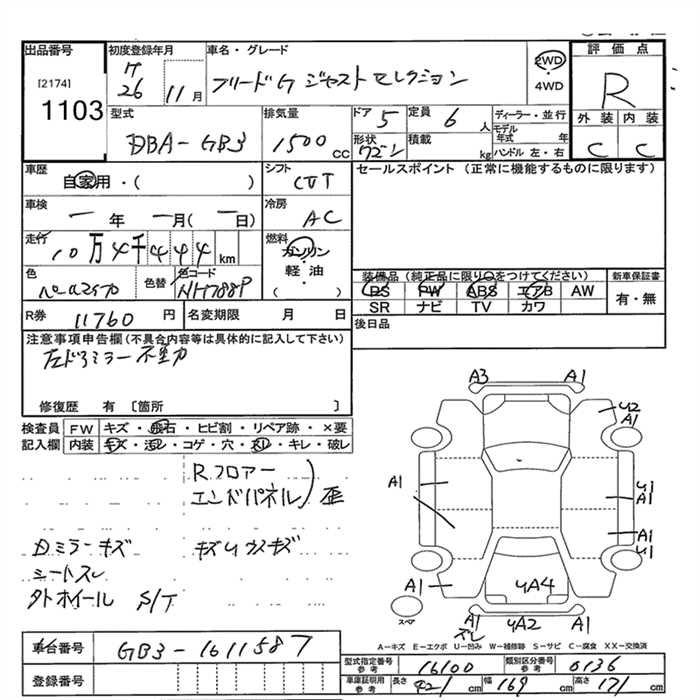 出品番号
[2174]
1103
初度登録年月
H
26 11 月
車名・グレード
フリード G ジャストセレクション
2WD
・
4WD
評価点
R
外装 内装
C C
型式
DBA-GB3
排気量
1500 CC
ドア 5
形状 ワゴン
定員 6 人
積載 kg
ディーラー・並行
モデル年式 年
ハンドル 左・右
車歴
自家用・( )
シフト
CVT
セールスポイント (正常に機能するものに限ります)
車検
— 年 — 月(— 日)
冷房
AC
走行
10万4千444 km
燃料
ガソリン
軽・油
( )
色
色替
色コード
NH788P
装備品(純正品に限り○をつけてください)
PS PW ABS エアB AW
SR ナビ TV カワ
新車保証書
有・無
R券 11760 円
名変期限 月 日
後日品
注意事項申告欄(不具合内容等は具体的に記入して下さい)
左ドアミラー不動
修復歴 有 [箇所 ]
検査員 FW キズ・飛石・ヒビ割・リペア跡・×要
記入欄 内装 キズ・汚レ・コゲ・穴・スレ・キレ・破レ
Rフロアー
エンドパネル 歪
Dミラーキズ キズUウスキズ
シートスレ
外ホイール S/T
A3 A1
U2
A1
A1
U1
A1
A1
U1
A1
U4A4
A1
A1
ズレ
U2A2
A1
スペア
A=キズ E=エクボ U=凹み W=補修跡 S=サビ C=腐食 XX=交換済
車台番号 GB3-1611587
登録番号
型式指定番号 参考 16100
類別区分番号 参考 0136
車庫証明用 参考 長さ 421 cm 幅 169 cm 高さ 171 cm